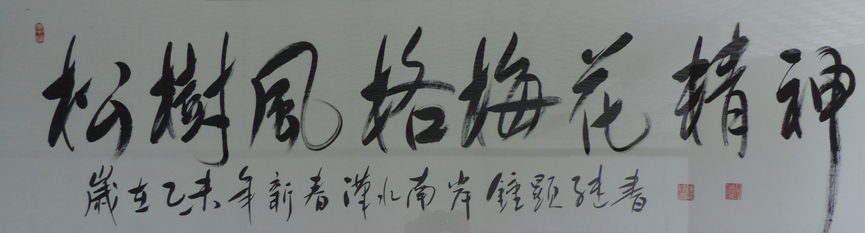 松樹風格梅花精神
歲在乙未年新春漢水南岸鍾顯德書